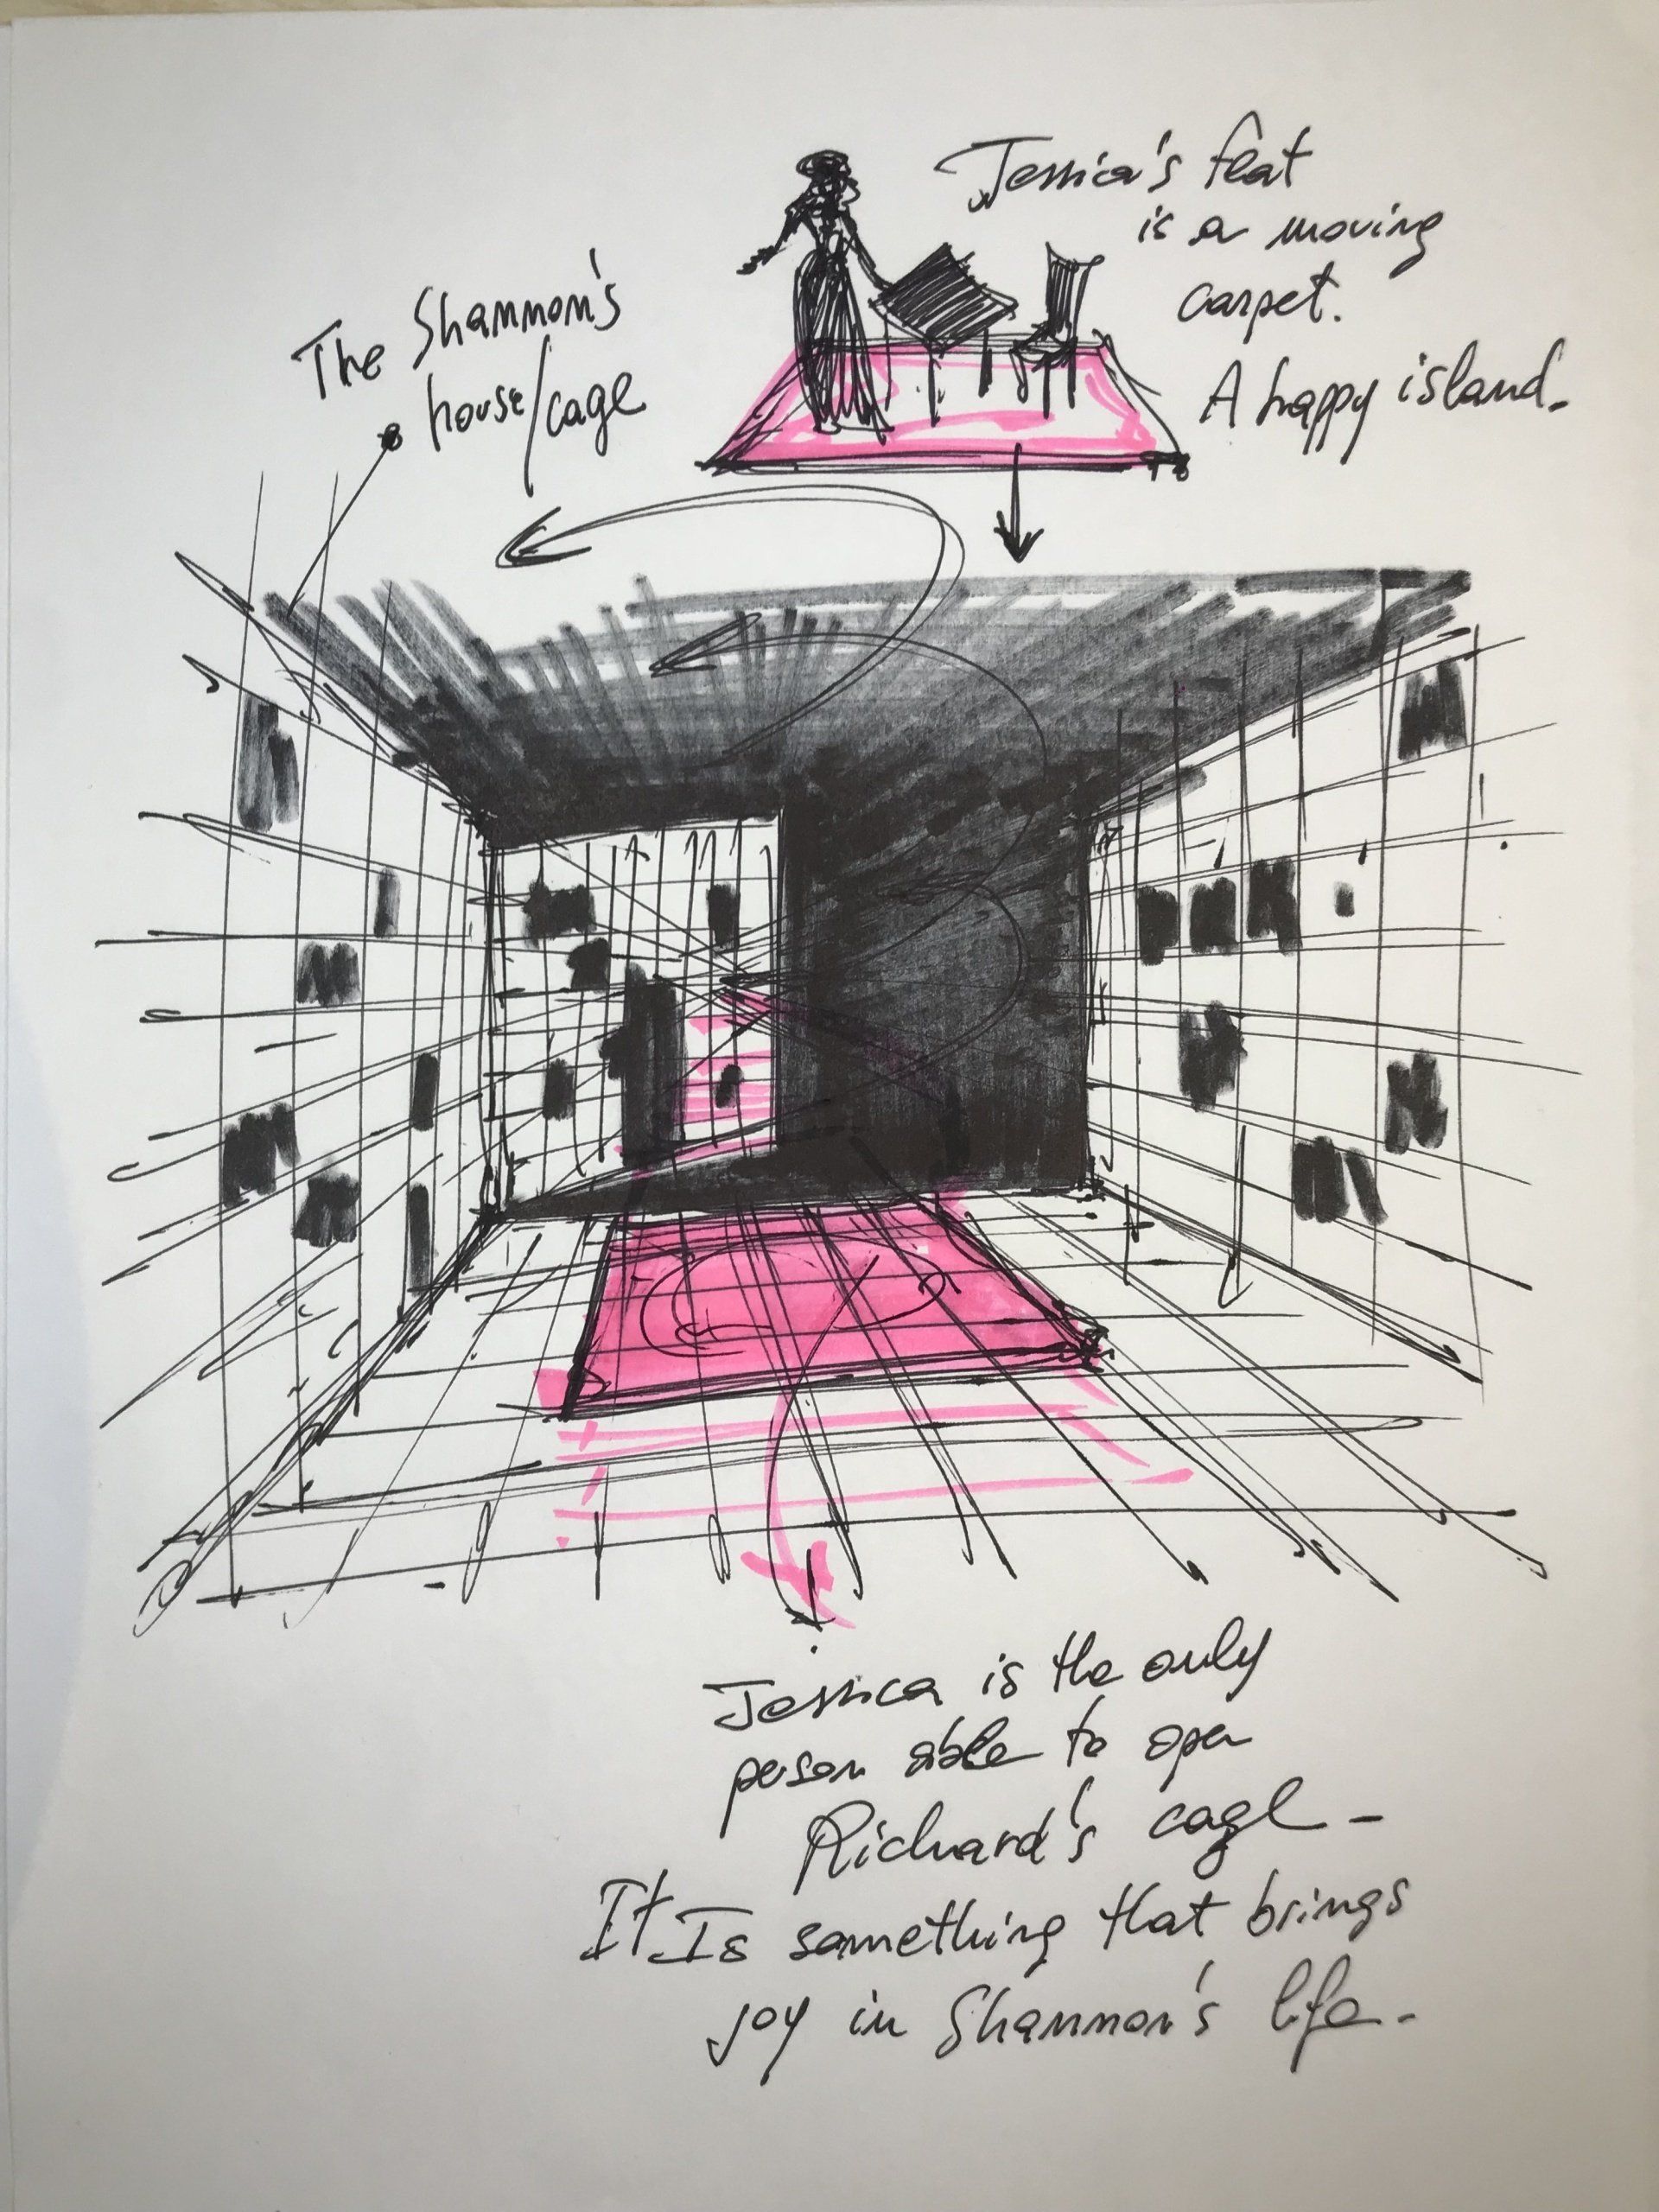 Jessica's flat
is a moving
carpet.
A happy island.
The Shannon's
house/cage
Jessica is the only
person able to open
Richard's cage -
It Is something that brings
joy in Shannon's life.